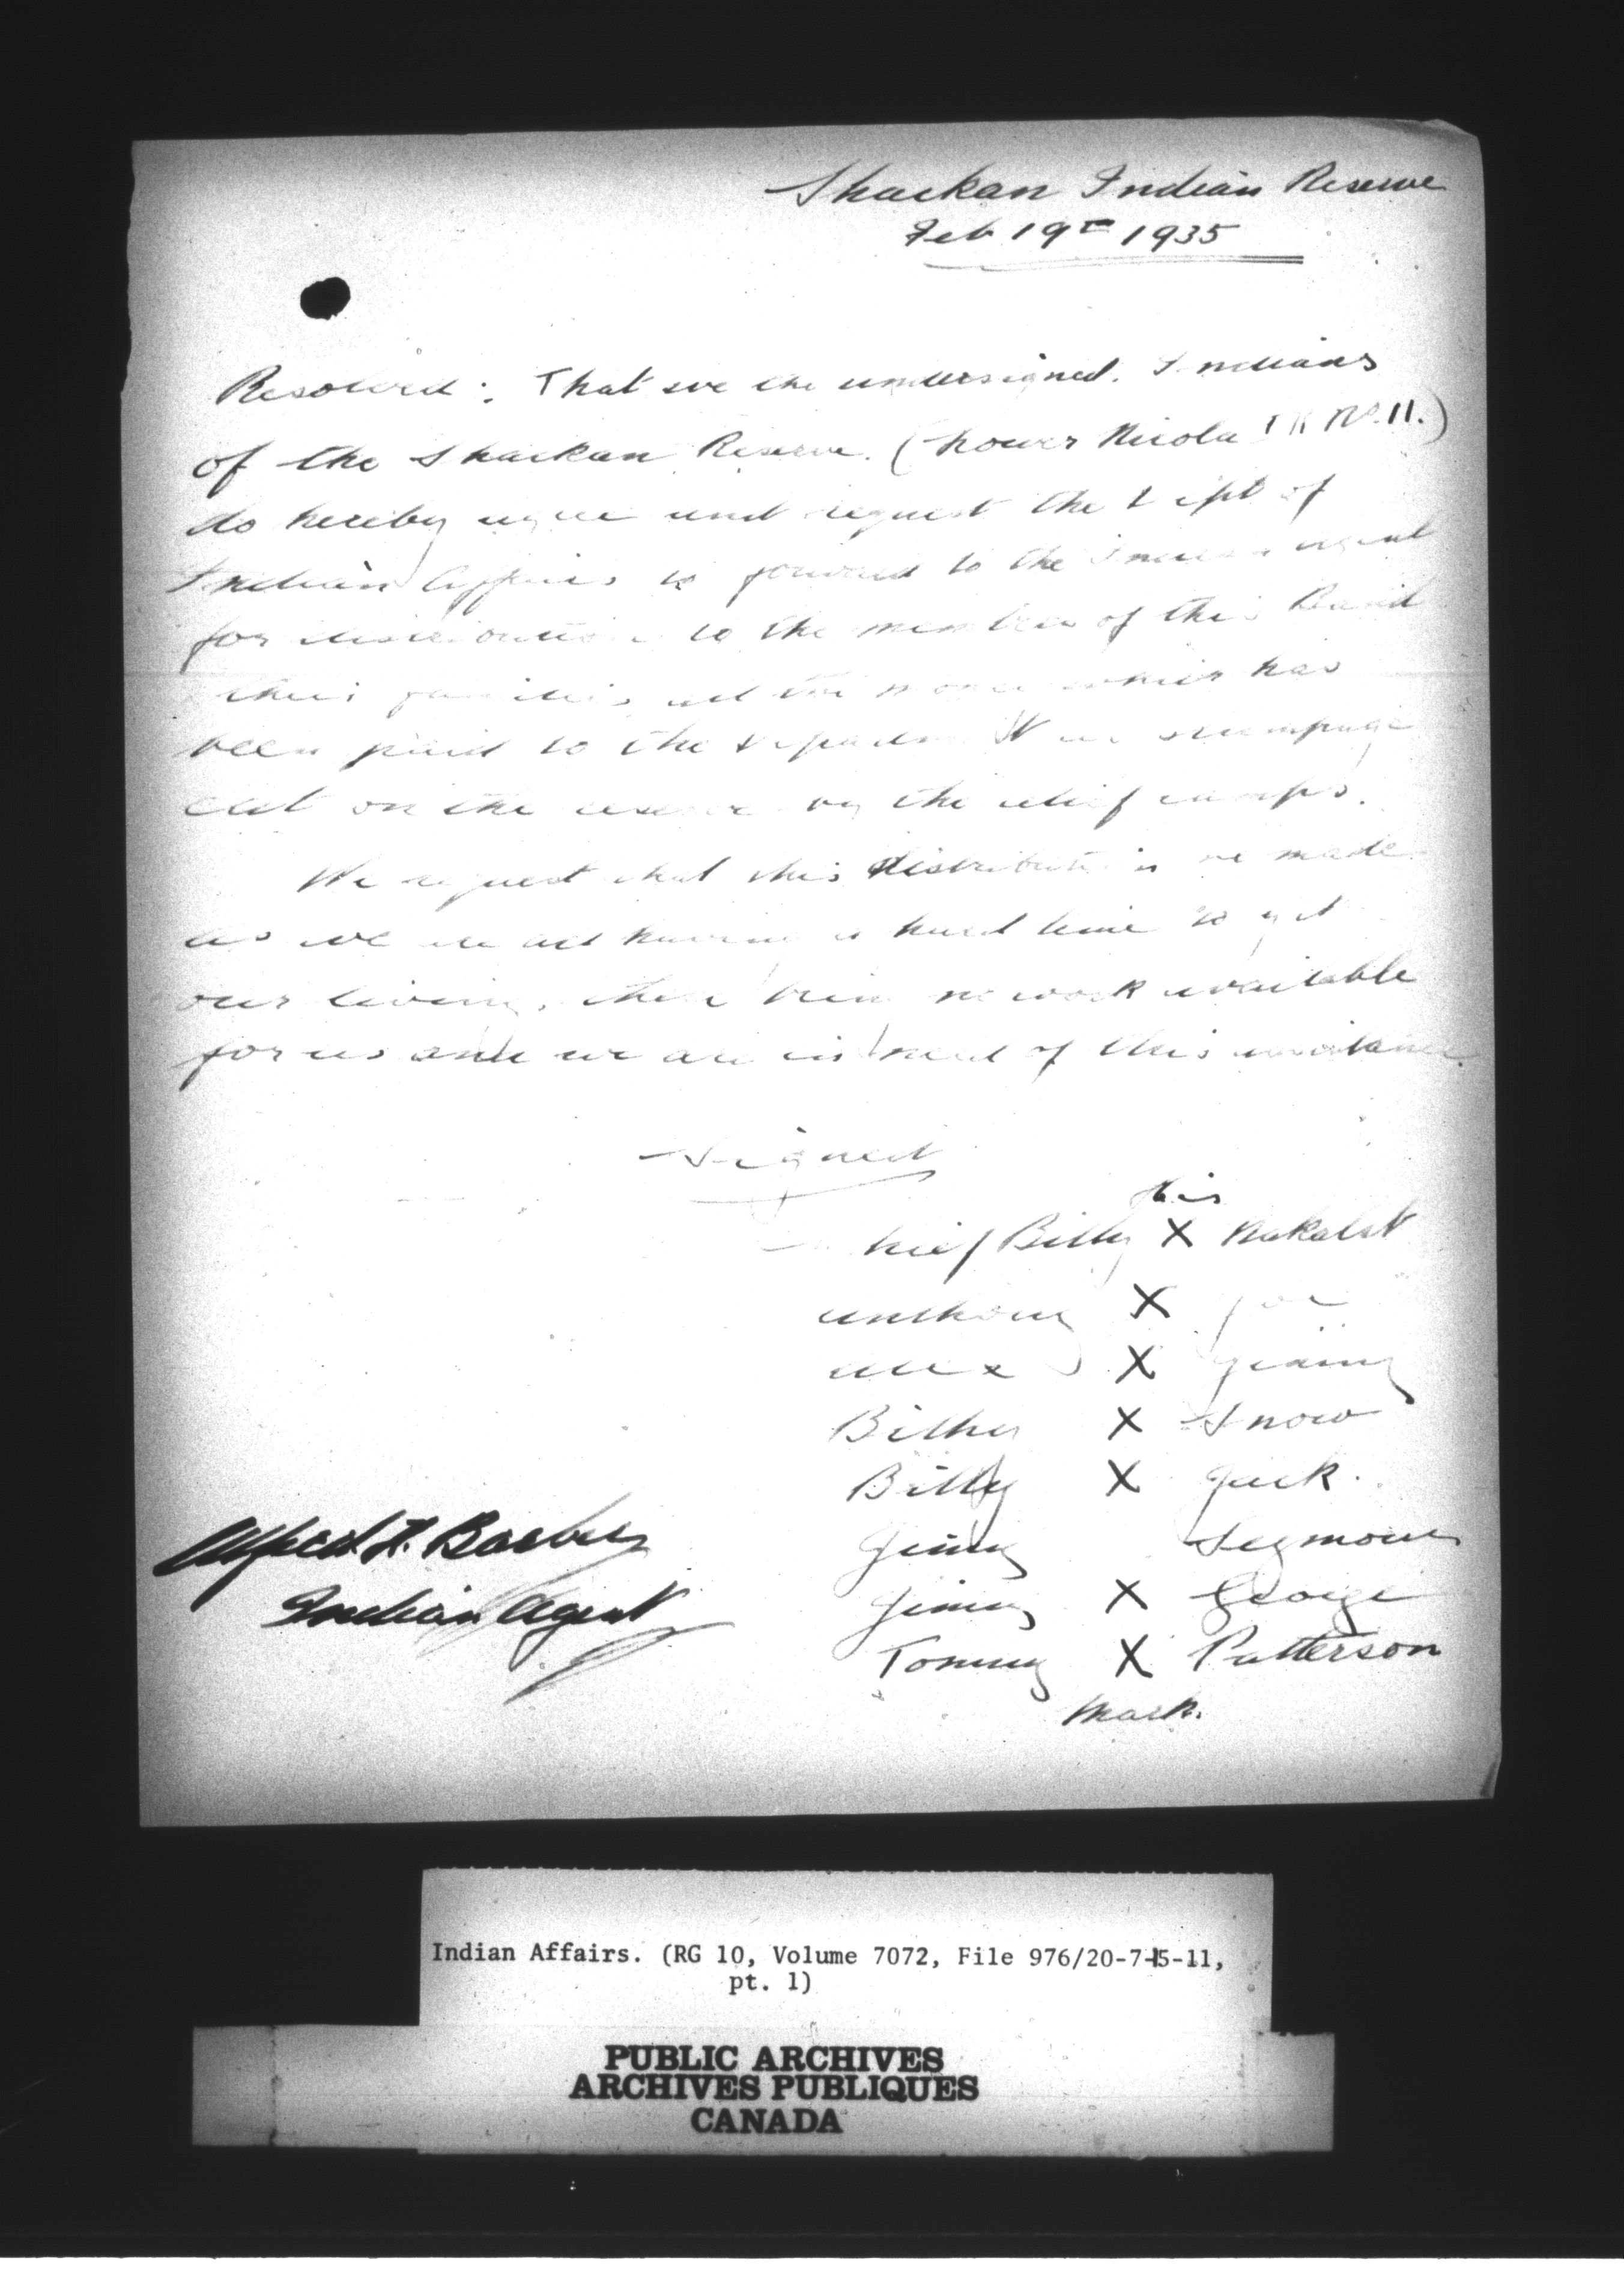 Shackan Indian Reserve
Feb 19th 1935
Resolved: That we the undersigned. Indians
of the Shackan Reserve. (Lower Nicola I R No. 11.)
do hereby agree and request the Dept of
Indian Affairs to forward to the Indian agent
for distribution to the members of this Band
their families all the money which has
been paid to the Department re stumpage
cut on the reserve by the relief camps.
We request that this distribution be made
as we are all having a hard time to get
our living, there being no work available
for us and we are in need of this assistance.
Signed
his
Chief Billy X
Anthony X Joe
Alex X Jimmy
Billy X Snow
Billy X Jack.
Jimmy Seymour
Jimmy X George
Tommy X Patterson
Mark.
Alfred H. Barber
Indian Agent
Indian Affairs. (RG 10, Volume 7072, File 976/20-7-15-11,
pt. 1)
PUBLIC ARCHIVES
ARCHIVES PUBLIQUES
CANADA